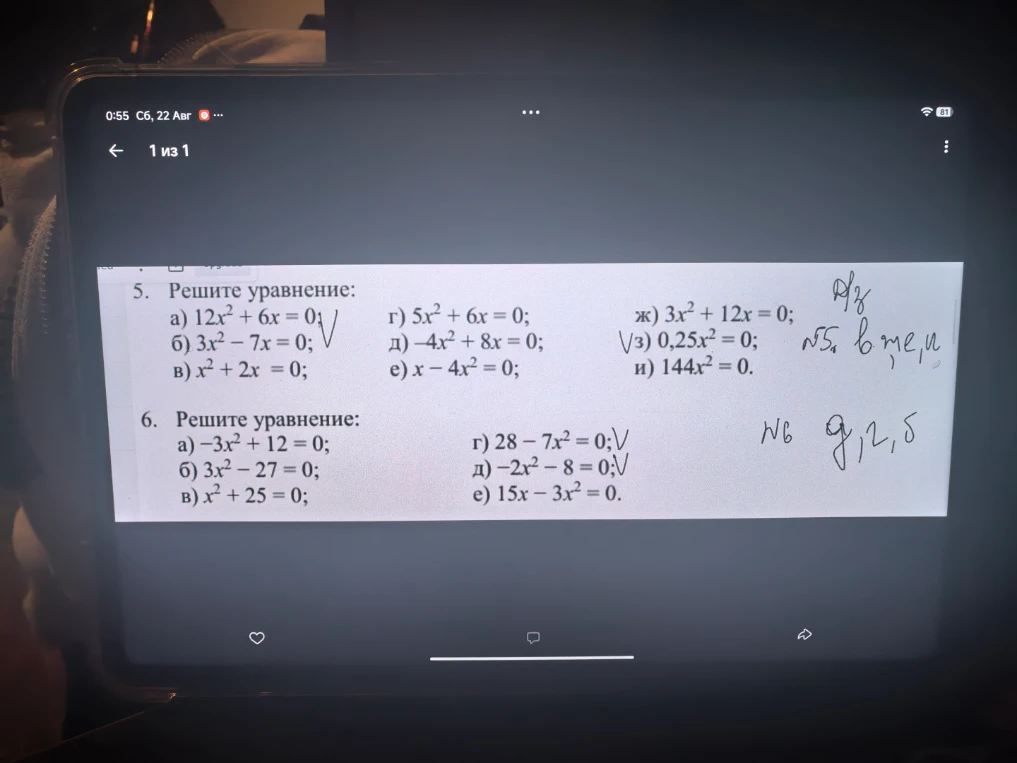 0:55 Сб, 22 Авг
81
1 из 1
5. Решите уравнение:
а) 12x² + 6x = 0;
б) 3x² – 7x = 0;
в) x² + 2x = 0;
г) 5x² + 6x = 0;
д) –4x² + 8x = 0;
е) x – 4x² = 0;
ж) 3x² + 12x = 0;
з) 0,25x² = 0;
и) 144x² = 0.
Д/з
№5. в, ж, е, и
6. Решите уравнение:
а) –3x² + 12 = 0;
б) 3x² – 27 = 0;
в) x² + 25 = 0;
г) 28 – 7x² = 0;
д) –2x² – 8 = 0;
е) 15x – 3x² = 0.
№6 д, г, б